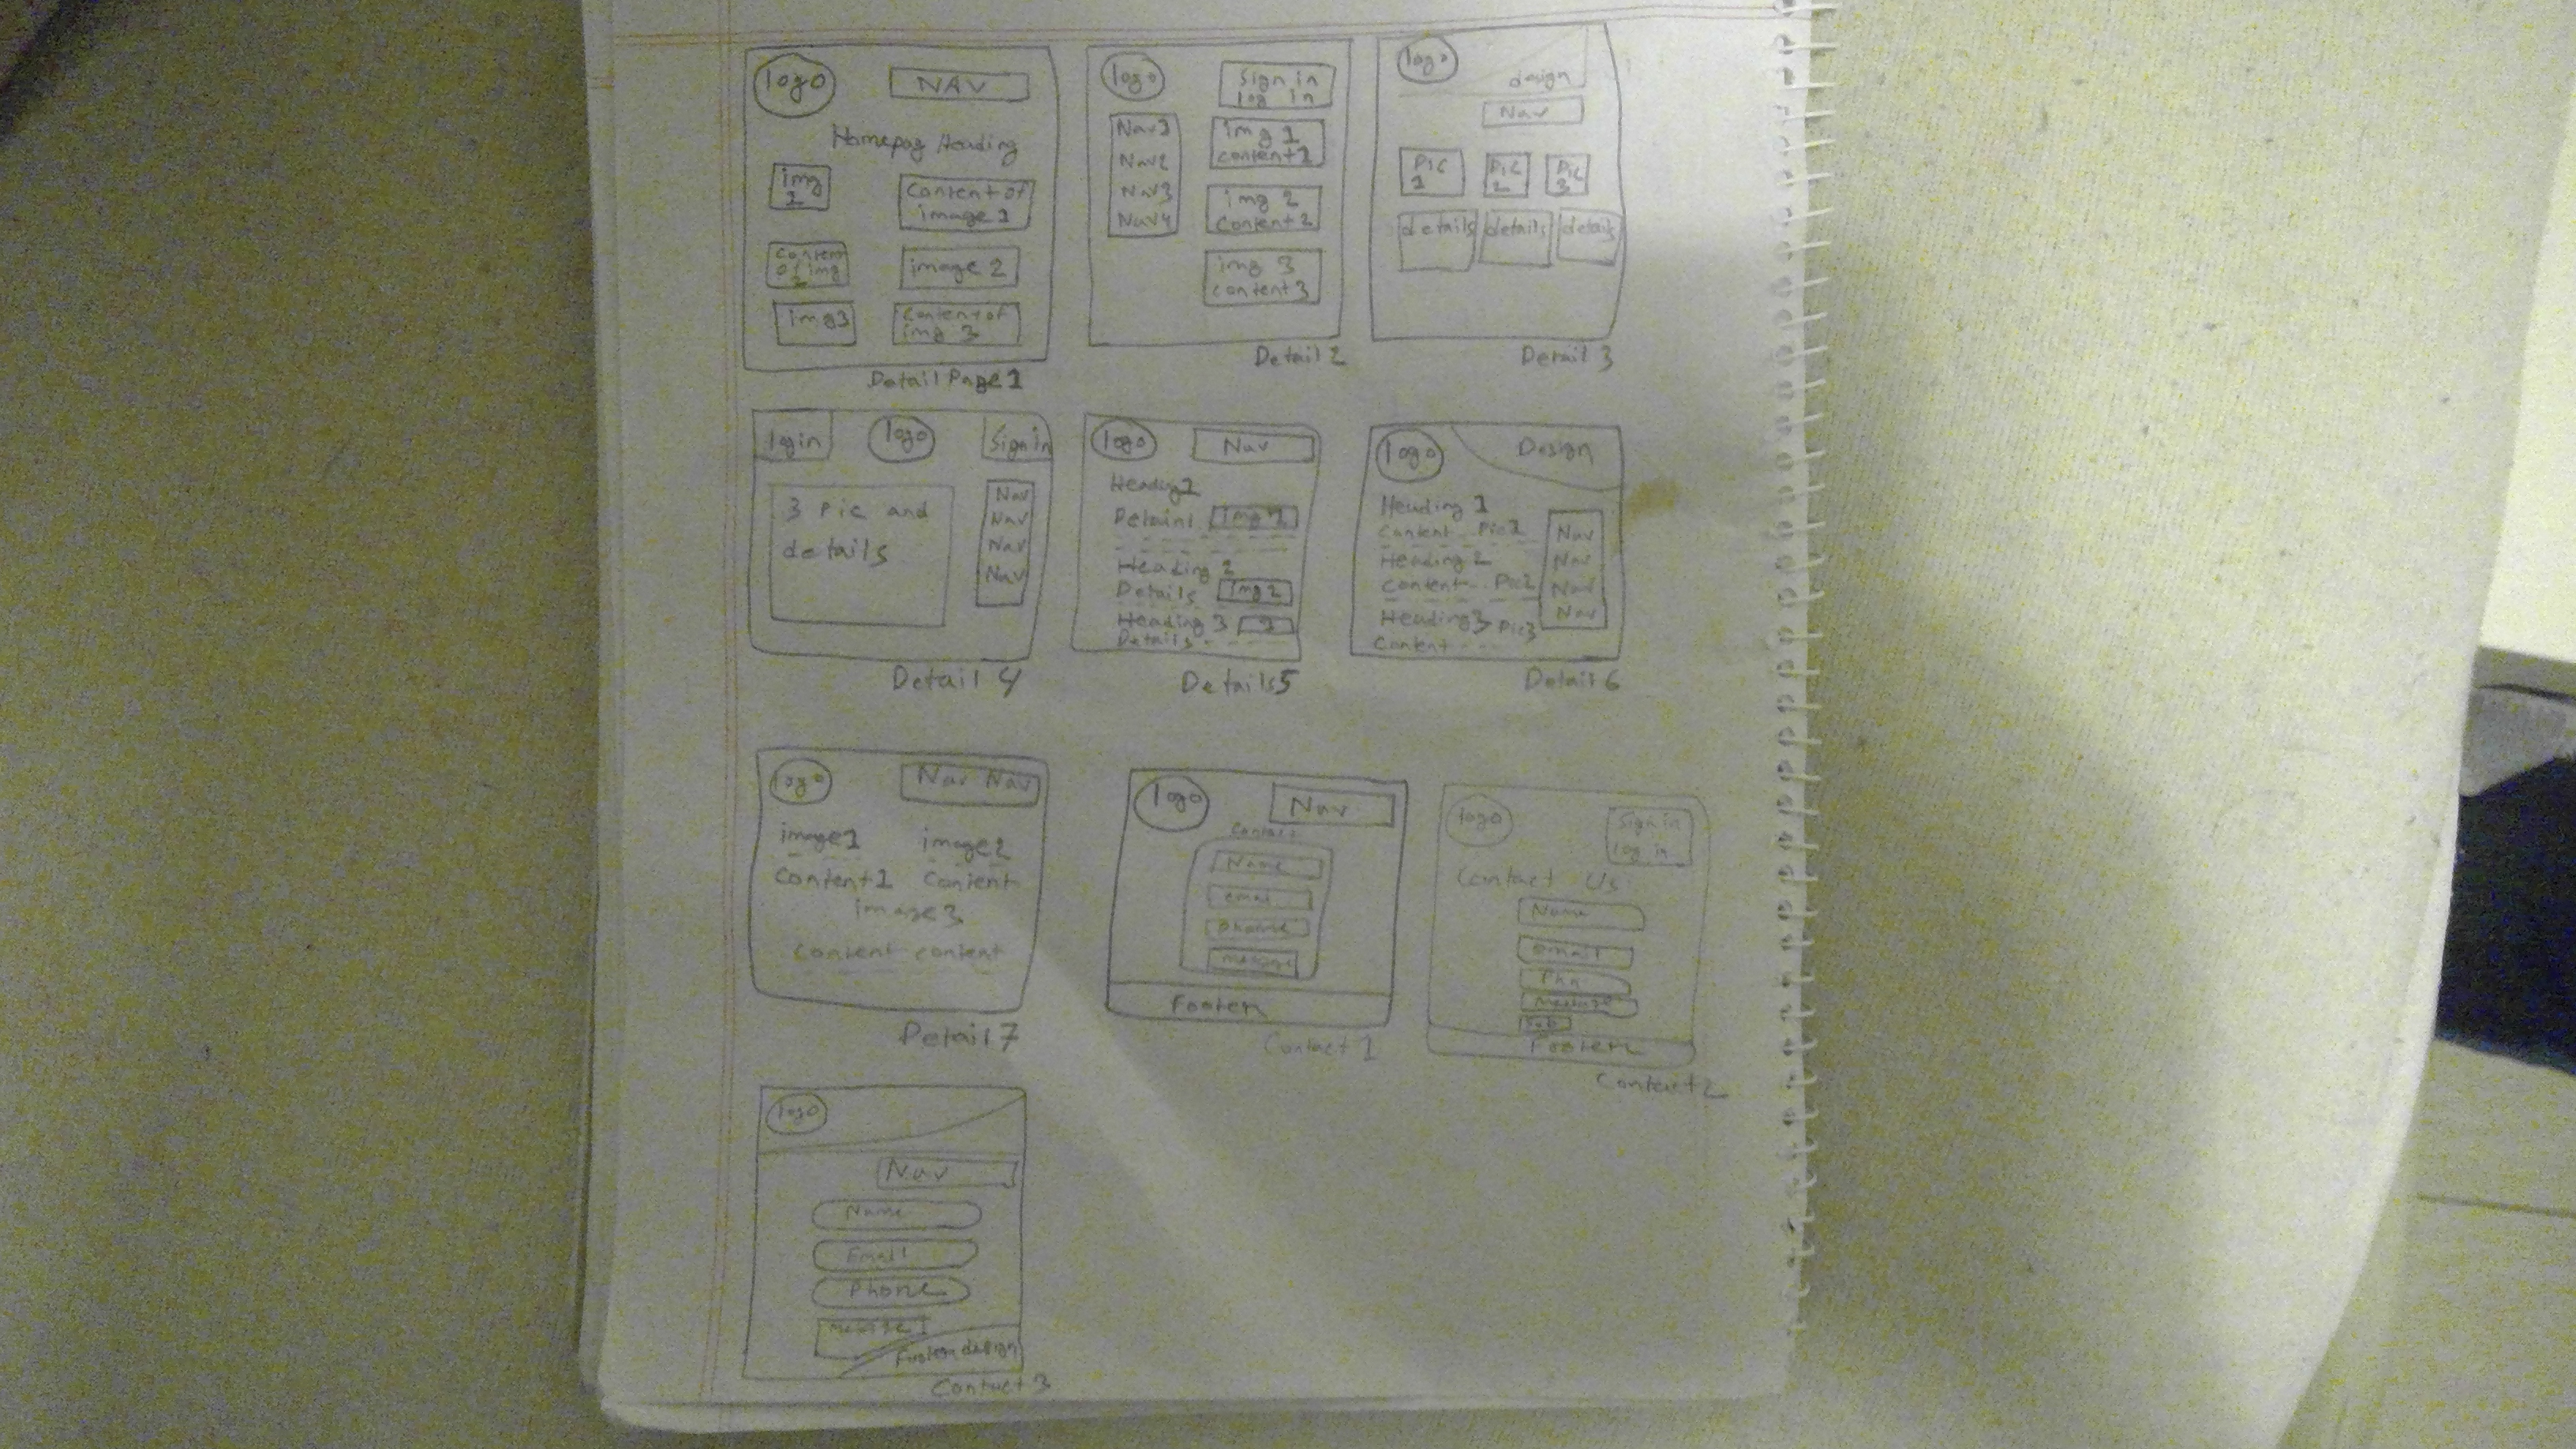 logo
NAV
Homepag Heading
img
1
Content of
image 1
Content
of img
2
image 2
img3
Content of
img 3
Detail Page 1
logo
Sign in
log in
Nav1
Nav2
Nav3
Nav4
img 1
Content1
img 2
Content2
img 3
content3
Detail 2
logo
design
Nav
Pic
1
Pic
2
Pic
3
details
details
details
Detail 3
login
logo
Sign in
3 Pic and
details
Nav
Nav
Nav
Nav
Detail 4
logo
Nav
Heading1
img 1
Heading 2
Details
img 2
Heading 3
3
Details
Details5
logo
Design
Heading 1
Content Pic1
Heading 2
Content Pic2
Heading3 Pic3
Content
Nav
Nav
Nav
Nav
Detail 6
logo
Nav Nav
image1 image2
Content1 Content
image3
Content content
Detail 7
logo
Nav
Contact
Name
email
phone
message
Footer
Contact 1
logo
Sign in
log in
Contact Us
Name
email
Phn
message
Sub
Footer
Contact2
logo
Nav
Name
Email
Phone
message
Footer design
Contact 3